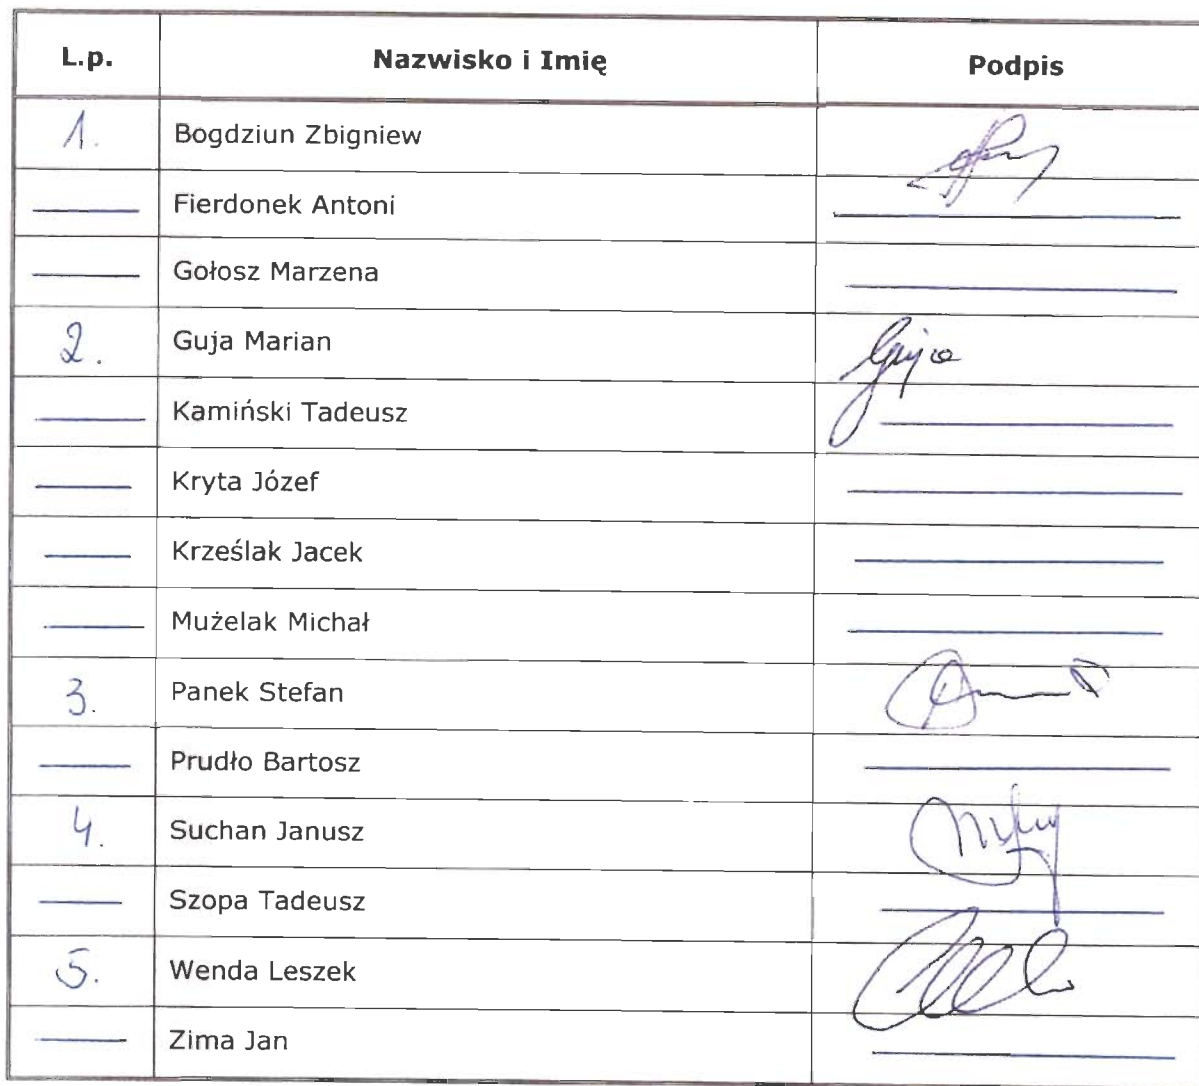 L.p. Nazwisko i Imię Podpis
1. Bogdziun Zbigniew
Fierdonek Antoni
Gołosz Marzena
2. Guja Marian Guja
Kamiński Tadeusz
Kryta Józef
Krześlak Jacek
Mużelak Michał
3. Panek Stefan
Prudło Bartosz
4. Suchan Janusz
Szopa Tadeusz
5. Wenda Leszek
Zima Jan